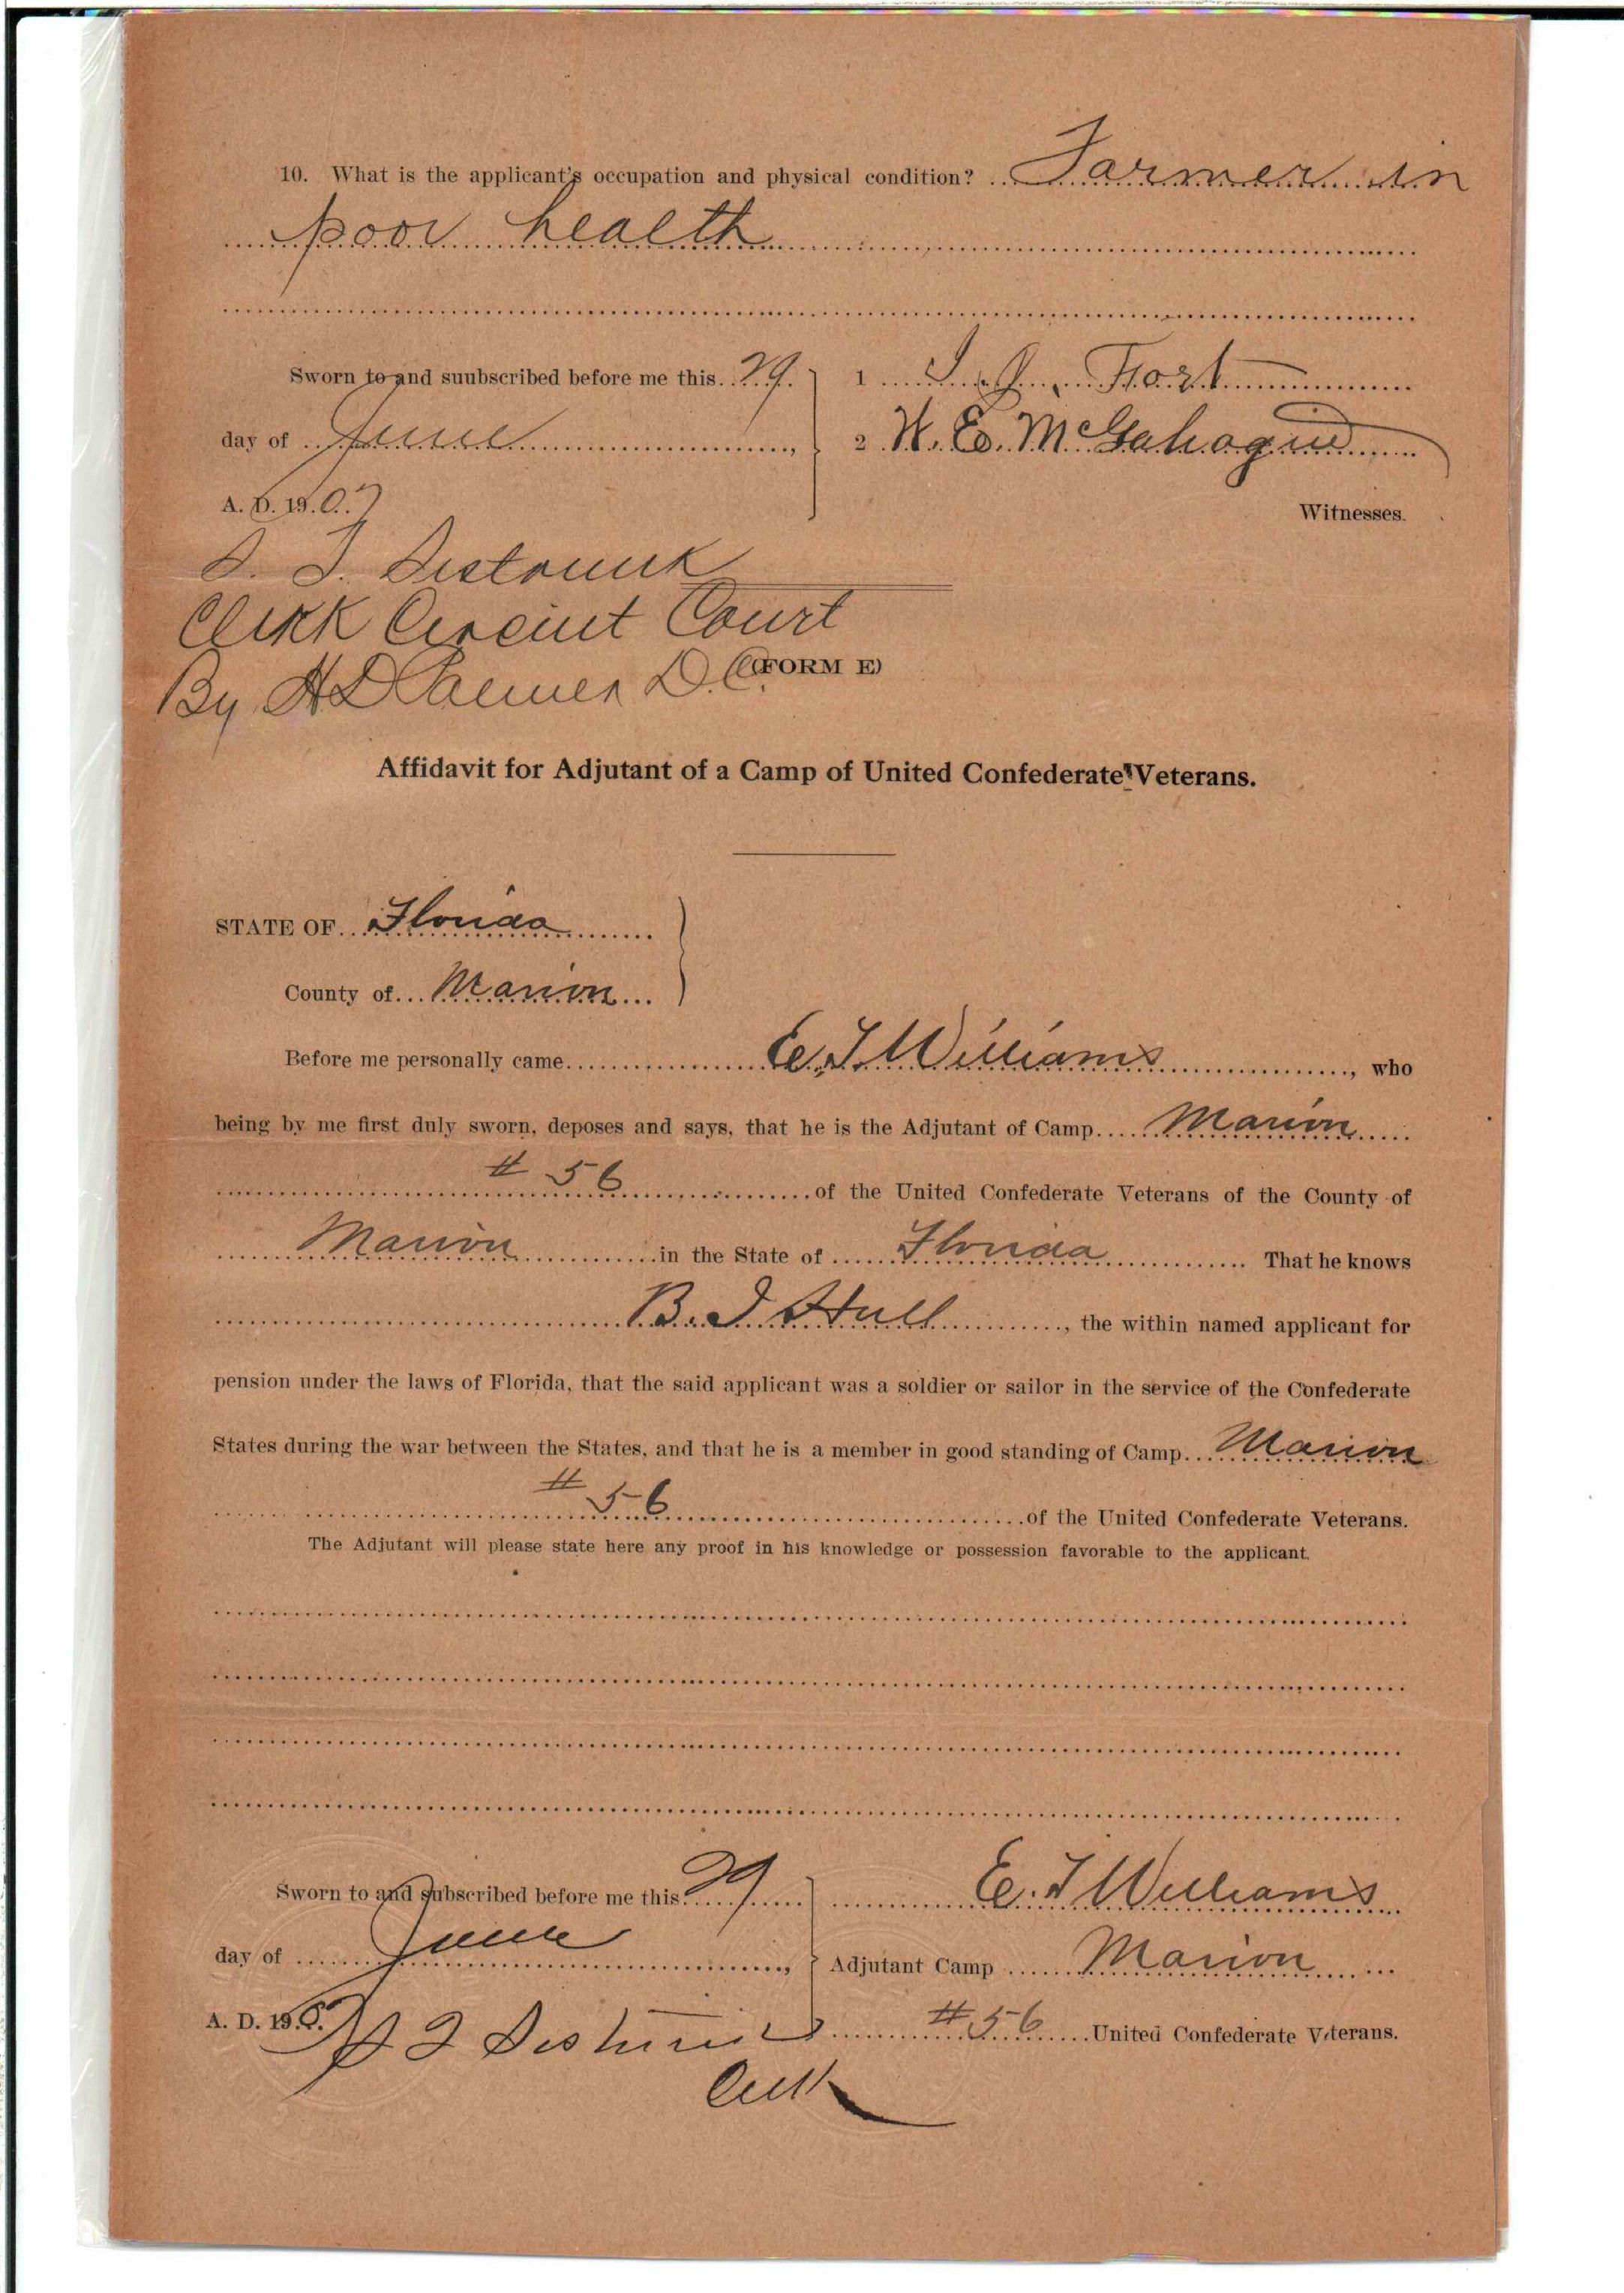 10. What is the applicant's occupation and physical condition? Farmer in
poor health
Sworn to and suubscribed before me this 29
1 I. J. Fort
day of June,
2 W. E. McGahagin
A. D. 1907
Witnesses.
S. T. Sistrunk
Clerk Circuit Court
By H D Palmer D.C.
(FORM E)
Affidavit for Adjutant of a Camp of United Confederate Veterans.
STATE OF Florida
County of Marion
Before me personally came E. T Williams, who
being by me first duly sworn, deposes and says, that he is the Adjutant of Camp Marion
# 56 of the United Confederate Veterans of the County of
Marion in the State of Florida That he knows
B. I Hull, the within named applicant for
pension under the laws of Florida, that the said applicant was a soldier or sailor in the service of the Confederate
States during the war between the States, and that he is a member in good standing of Camp Marion
# 56 of the United Confederate Veterans.
The Adjutant will please state here any proof in his knowledge or possession favorable to the applicant.
Sworn to and subscribed before me this 29
E. T Williams
day of June,
Adjutant Camp Marion
A. D. 1907
S T Sistrunk
# 56 United Confederate Veterans.
Clerk